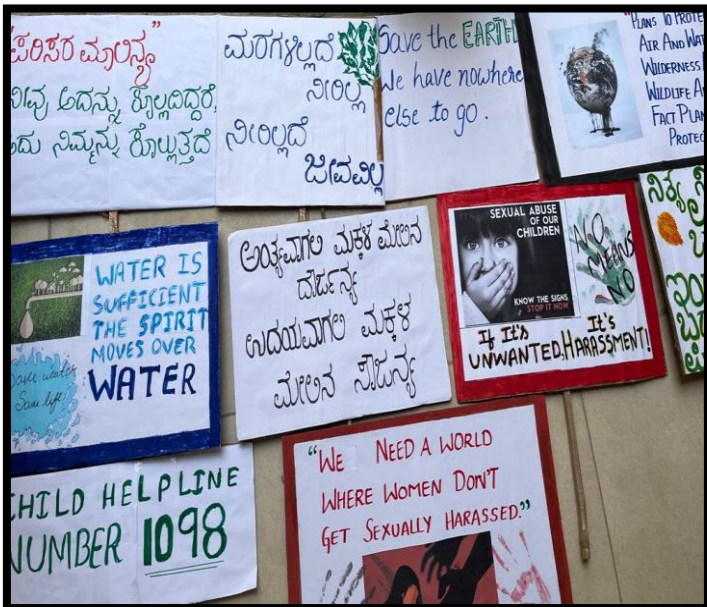 "ಪರಿಸರ ಮಾಲಿನ್ಯ"
ನೀವು ಅದನ್ನು ಕೊಲ್ಲದಿದ್ದರೆ,
ಅದು ನಿಮ್ಮನ್ನು ಕೊಲ್ಲುತ್ತದೆ
ಮರಗಳಿಲ್ಲದೆ
ನೀರಿಲ್ಲ
ನೀರಿಲ್ಲದೆ
ಜೀವವಿಲ್ಲ
Save the EARTH
We have nowhere
else to go.
"PLANS TO PROTE
AIR AND WAT
WILDERNESS
WILDLIFE A
FACT PLAN
PROTEC
WATER IS
SUFFICIENT
THE SPIRIT
MOVES OVER
WATER
Save water
Save life
ಅಂತ್ಯವಾಗಲಿ ಮಕ್ಕಳ ಮೇಲಿನ
ದೌರ್ಜನ್ಯ
ಉದಯವಾಗಲಿ ಮಕ್ಕಳ
ಮೇಲಿನ ಸೌಜನ್ಯ
SEXUAL ABUSE
OF OUR
CHILDREN
KNOW THE SIGNS
STOP IT NOW
NO
MEANS
NO
If It's It's
UNWANTED, HARASSMENT!
CHILD HELPLINE
NUMBER 1098
"WE NEED A WORLD
WHERE WOMEN DON'T
GET SEXUALLY HARASSED."